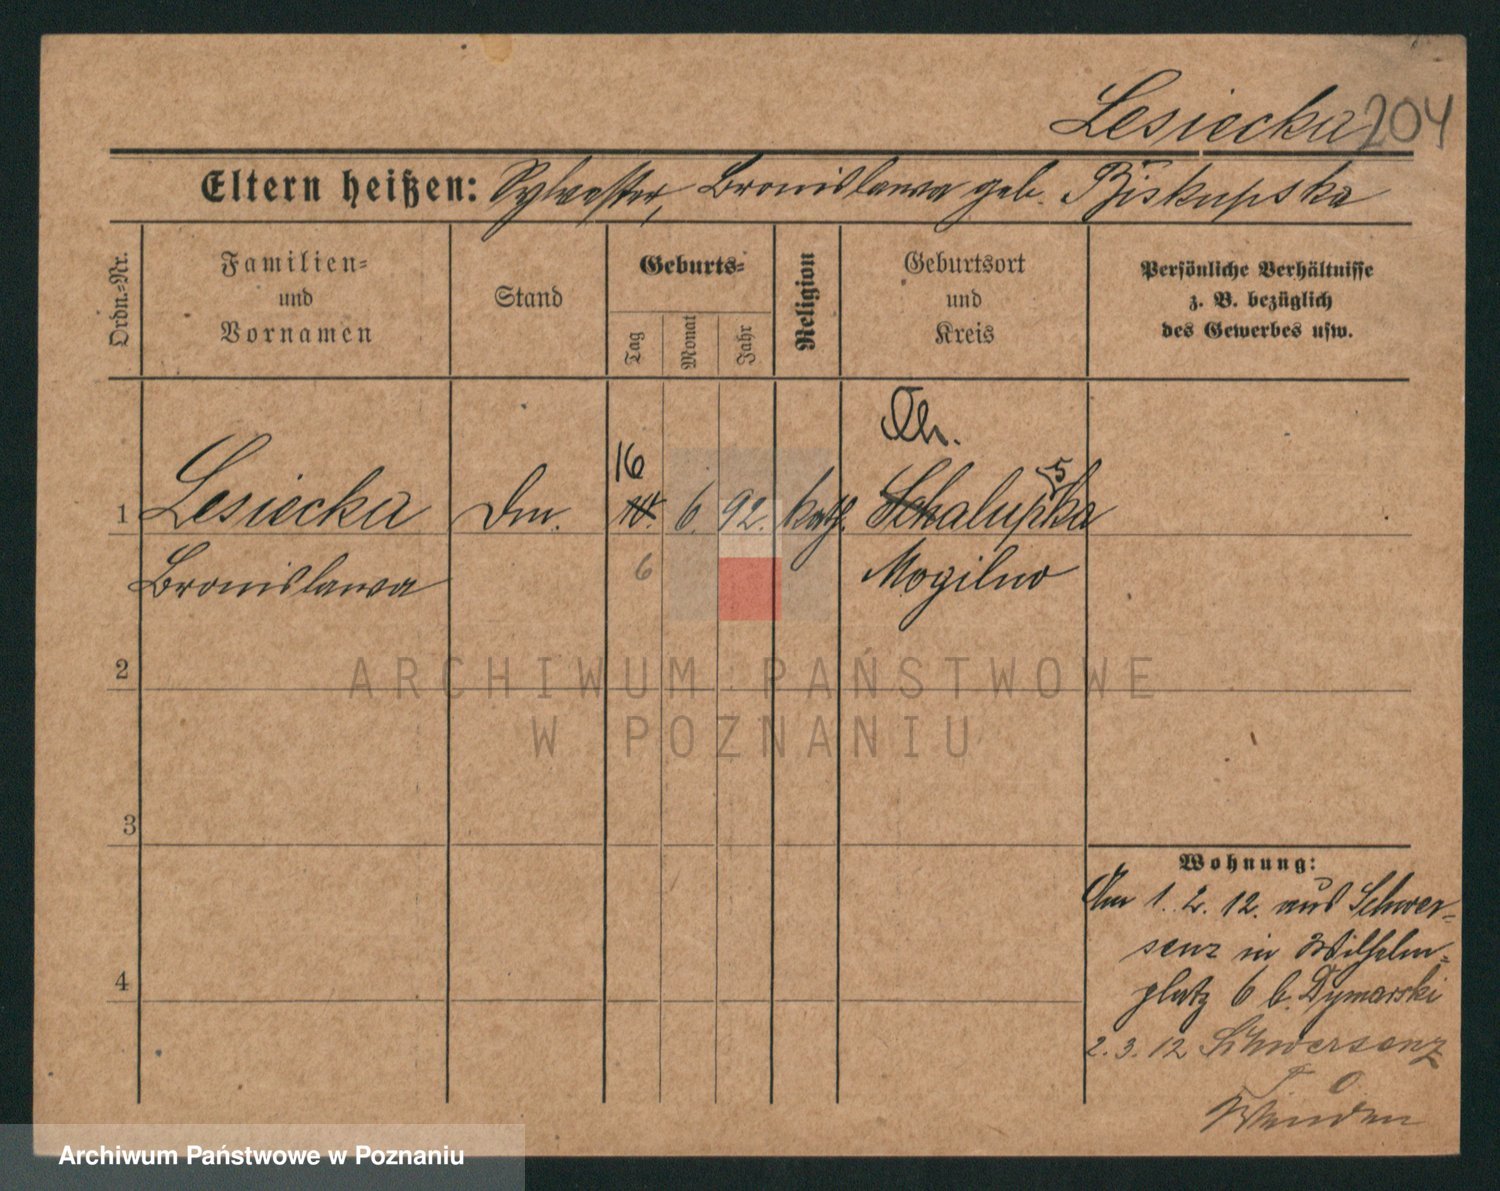 Lesiecka 204
Eltern heißen: Sylvester, Bronislawa geb. Biskupska
Ordn.-Nr.
Familien-
und
Vornamen
Stand
Geburts-
Tag
Monat
Jahr
Religion
Geburtsort
und
Kreis
Persönliche Verhältnisse
z. B. bezüglich
des Gewerbes usw.
Ch.
16
1 Lesiecka Dm. 6. 92. kath. Schalupska
Bronislawa 6 Mogilno
2
ARCHIWUM PAŃSTWOWE
W POZNANIU
3
Wohnung:
Am 1. 2. 12. aus Schwer-
senz in Wilhelm-
4
platz 6 b. Dymarski
2. 3. 12 Schwersenz
Archiwum Państwowe w Poznaniu